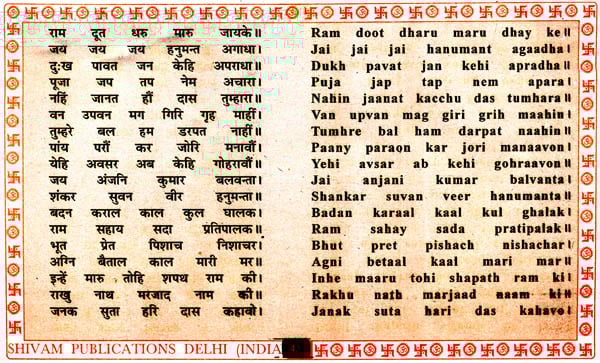 राम दूत धरु मारु जायके॥
जय जय जय हनुमन्त अगाधा।
दुःख पावत जन केहि अपराधा॥
पूजा जप तप नेम अचारा।
नहिं जानत हौं दास तुम्हारा॥
वन उपवन मग गिरि गृह माहीं।
तुम्हरे बल हम डरपत नाहीं॥
पांय परौं कर जोरि मनावौं।
येहि अवसर अब केहि गोहरावौं॥
जय अंजनि कुमार बलवन्ता।
शंकर सुवन वीर हनुमन्ता॥
बदन कराल काल कुल घालक।
राम सहाय सदा प्रतिपालक॥
भूत प्रेत पिशाच निशाचर।
अग्नि बैताल काल मारी मर॥
इन्हें मारु तोहि शपथ राम की।
राखु नाथ मरजाद नाम की॥
जनक सुता हरि दास कहावो।
Ram doot dharu maru dhay ke॥
Jai jai jai hanumant agaadha।
Dukh pavat jan kehi apradha॥
Puja jap tap nem apara।
Nahin jaanat kacchu das tumhara॥
Van upvan mag giri grih maahin।
Tumhre bal ham darpat naahin॥
Paany paraon kar jori manaavon।
Yehi avsar ab kehi gohraavon॥
Jai anjani kumar balvanta।
Shankar suvan veer hanumanta॥
Badan karaal kaal kul ghalak।
Ram sahay sada pratipalak॥
Bhut pret pishach nishachar।
Agni betaal kaal mari mar॥
Inhe maaru tohi shapath ram ki।
Rakhu nath marjaad naam ki॥
Janak suta hari das kahavo।
SHIVAM PUBLICATIONS DELHI (INDIA)